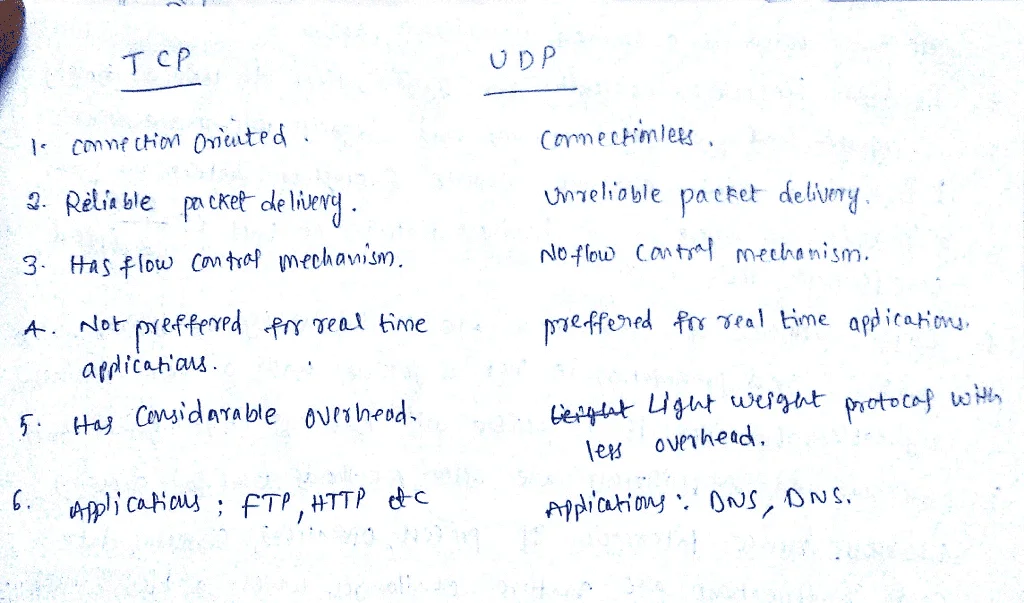 TCP UDP
1. connection oriented. Connectionless.
2. Reliable packet delivery. Unreliable packet delivery.
3. Has flow control mechanism. No flow control mechanism.
4. Not preffered for real time preffered for real time applications.
applications.
5. Has Considarable overhead. Light weight protocol with
less overhead.
6. Applications ; FTP, HTTP etc Applications : DNS, DNS.